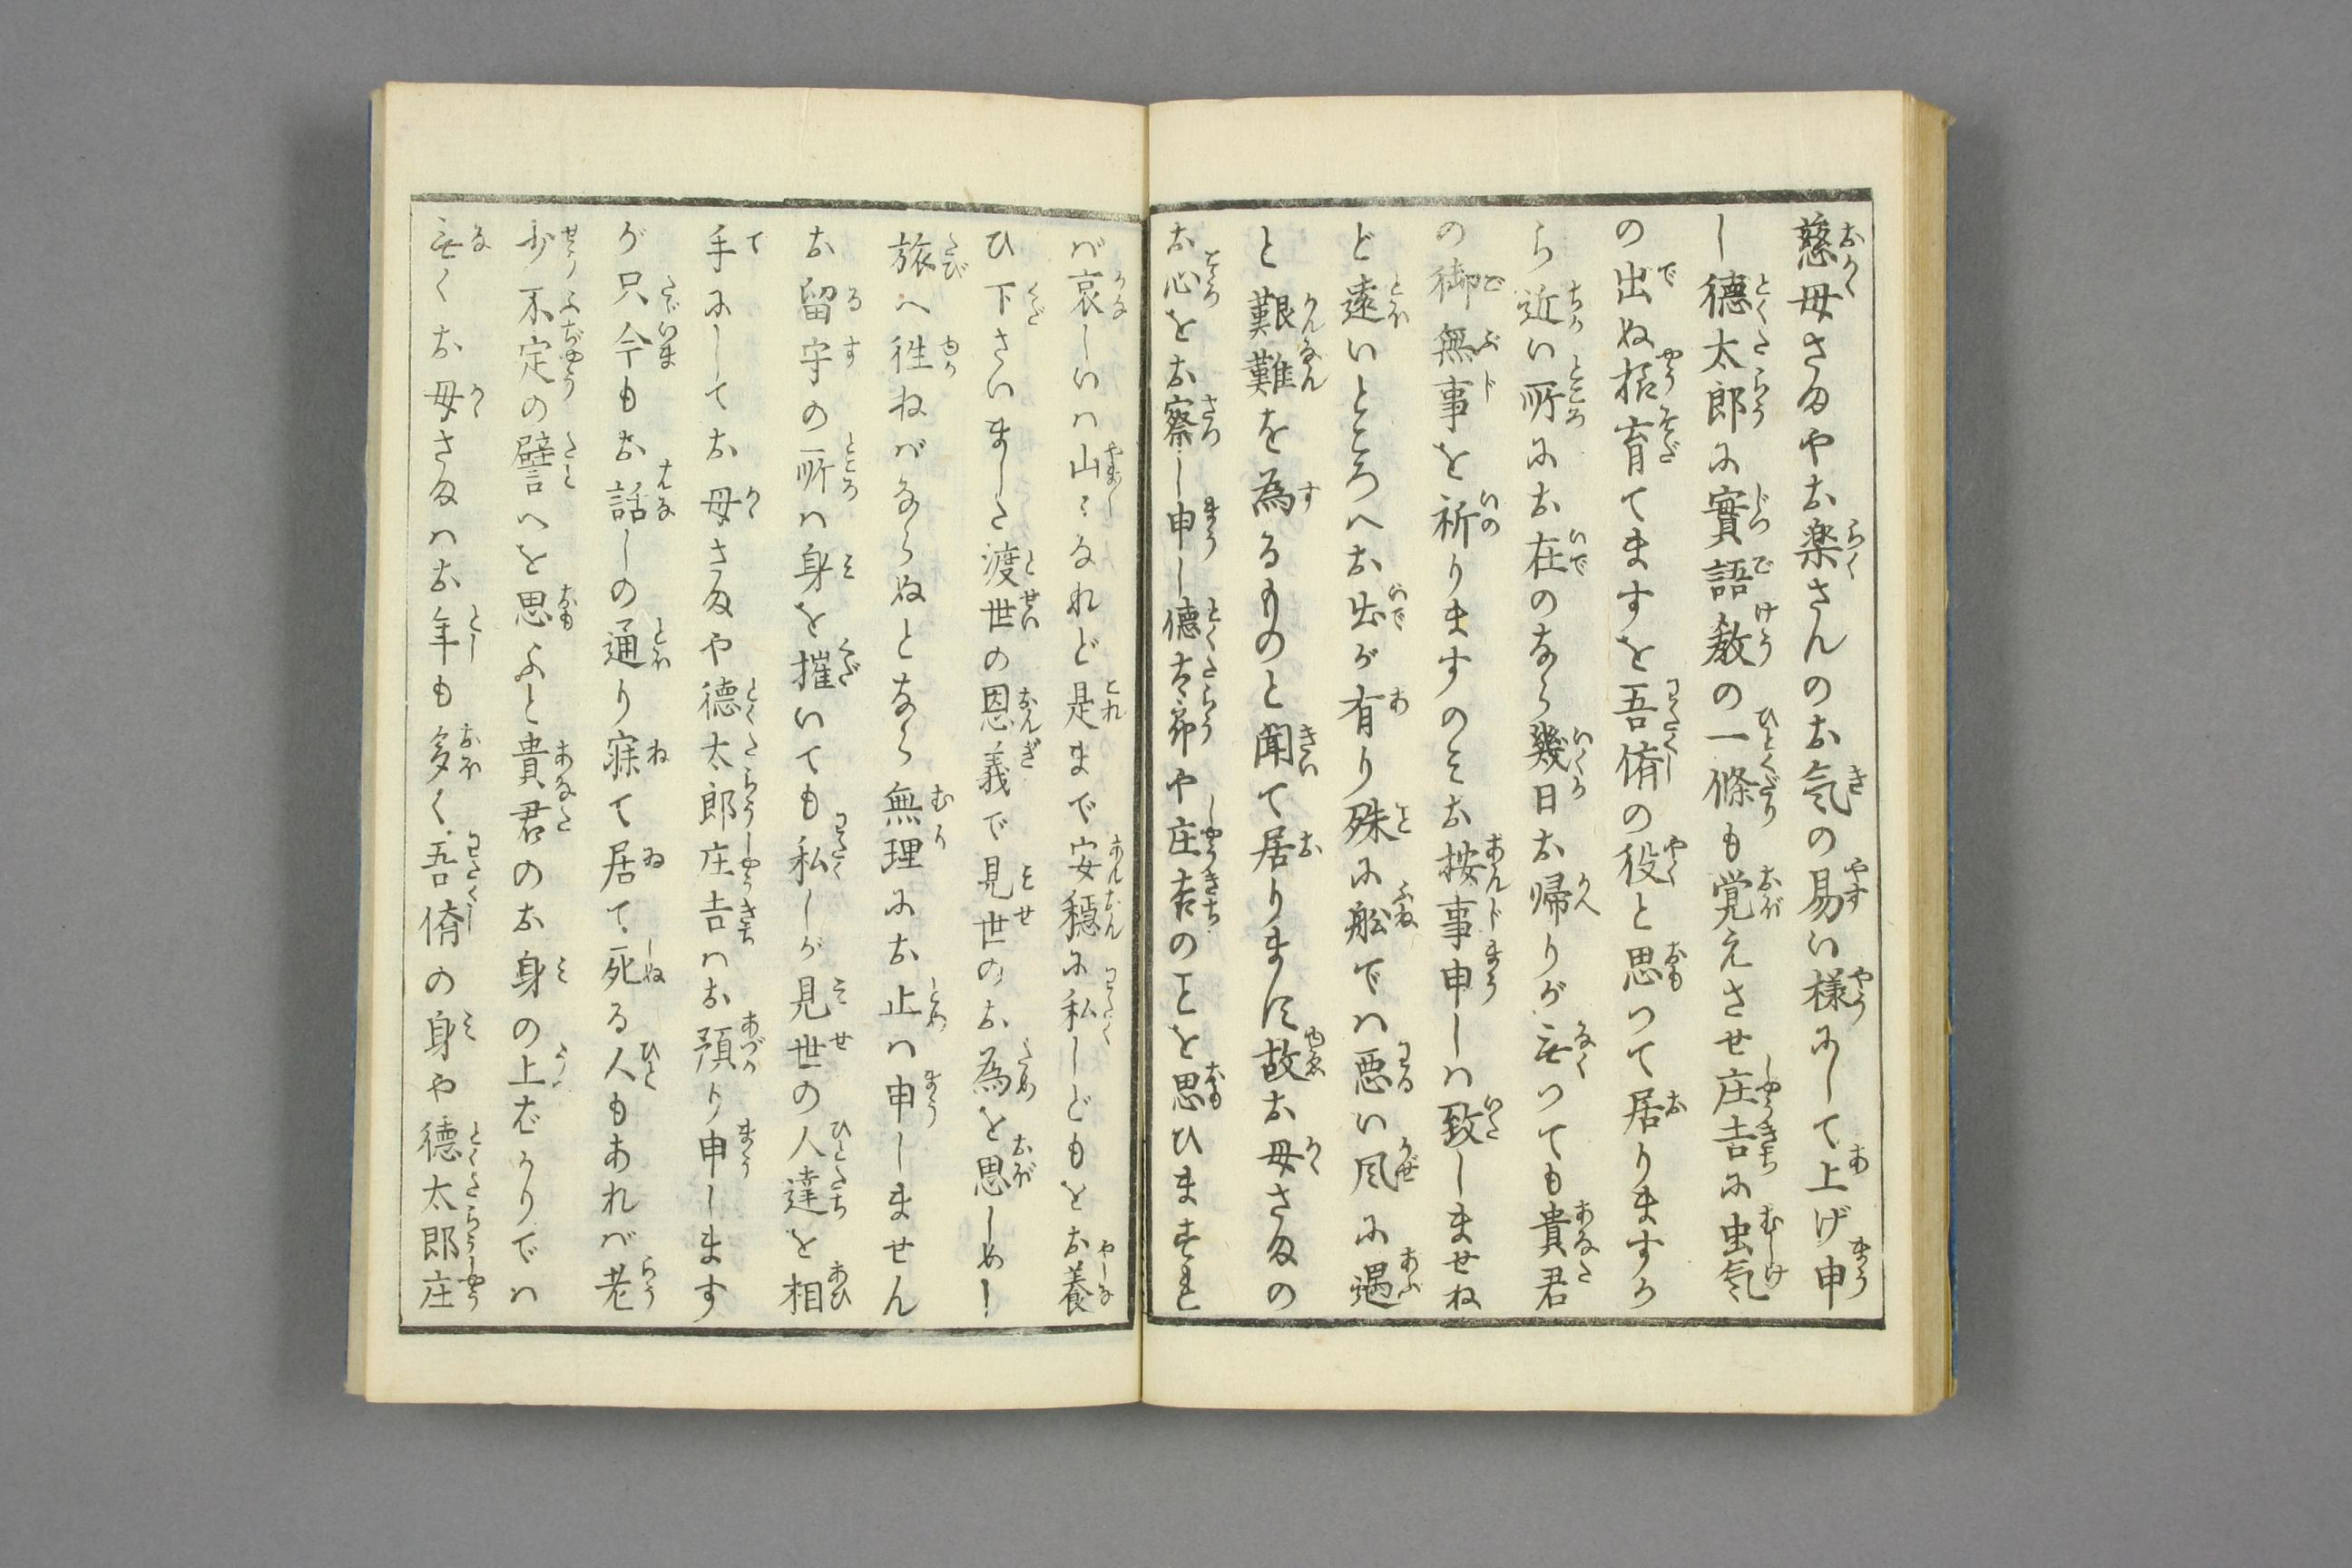 慈母さまやお楽さんのお気の易い様にして上げ申
し徳太郎に實語教の一條も覚えさせ庄吉に虫気
の出ぬ样育てますを吾儕の役と思つて居りますか
ら近い所にお在のなら幾日お帰りが无つても貴君
の御無事を祈りますのみお按事申しハ致しませね
ど遠いところへお出が有り殊に舩でハ悪い风に遇
と艱難を為るものと聞て居りまに故お母さまの
お心をお察し申し徳太郎や庄吉のことを思ひますれ
バ哀しいハ山〻なれど是まで安穏に私しどもをお養
ひ下さいました渡世の恩義で見世のお為を思しめし
旅へ徃ねバならぬとなら無理にお止ハ申しません
お留守の所ハ身を摧いても私しが見世の人達を相
手にしてお母さまや徳太郎庄吉ハお預り申します
が只今もお話しの通り寐て居て死る人もあれバ老
少不定の譬へを思ふと貴君のお身の上ばかりでハ
无くお母さまハお年も多く吾儕の身や徳太郎庄